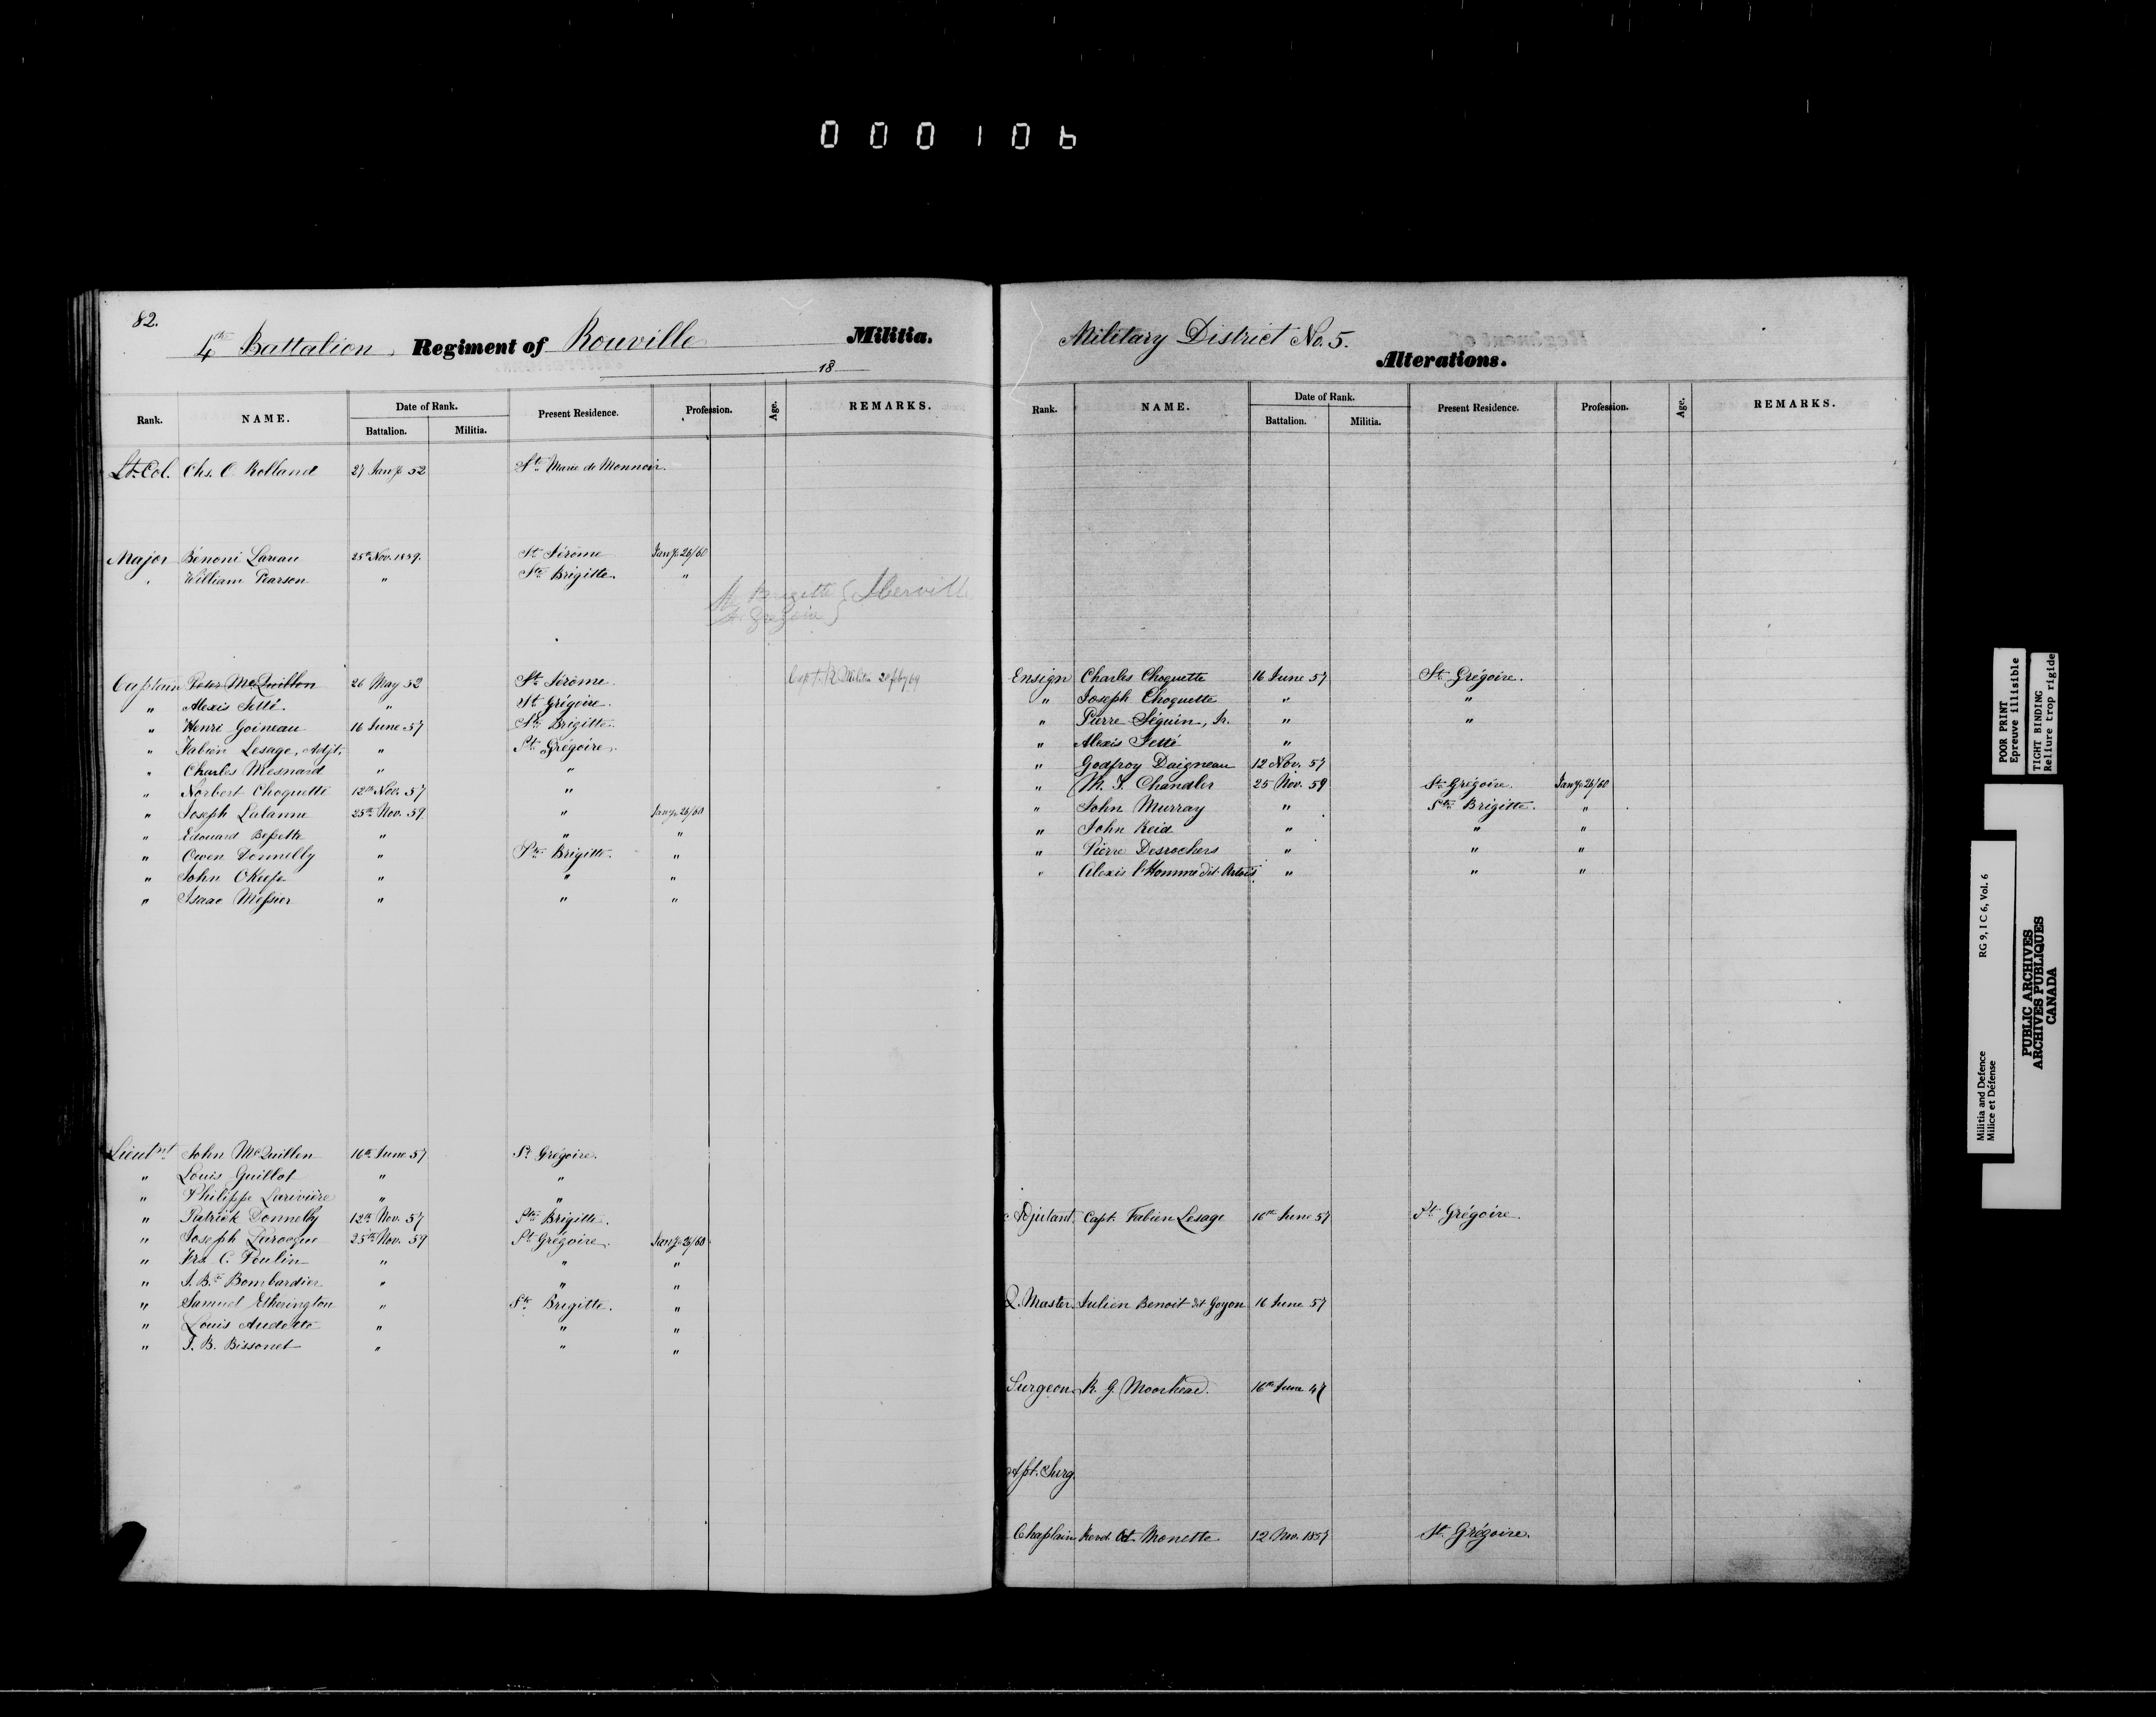 000106
82.
4th Battalion, Regiment of Rouville Militia.
18
Rank. NAME. Date of Rank. Present Residence. Profession. Age. REMARKS.
Battalion. Militia.
Lt. Col. Chs. O. Rolland 27 Jany. 52 Ste. Marie de Monnoir.
Major Bénoni Lareau 25th Nov. 1859. St. Jérôme Jany. 26/60
" William Pearson " Ste. Brigitte. "
St Brigitte } Iberville
St. Gregoire }
Captain Peter McQuillon 26 May 52 St. Jérôme. 20 feby 64
" Alexis Tetté. " St. Grégoire.
" Henri Goineau 16 June 57 Ste. Brigitte.
" Fabien Lesage, Adjt. " St. Grégoire.
" Charles Mesnard " "
" Norbert Choquette 12th Nov. 57 "
" Joseph Lalanne 25th Nov. 59 " Jany. 26/60
" Edouard Bessette " " "
" Owen Donnelly " Ste. Brigitte. "
" John OKeefe " " "
" Isaac Messier " " "
Lieutnt John McQuillen 16th June 57 St. Grégoire.
" Louis Guillot " "
" Philippe Larivière " "
" Patrick Donnelly 12th Nov. 57 Ste. Brigitte.
" Joseph Larocque 25th Nov. 59 St. Grégoire. Jany. 26/60
" Frs. C. Poulin " " "
" J. Bte. Bombardier " " "
" Samuel Etherington " Ste. Brigitte. "
" Louis Audette " " "
" J. B. Bissonet " " "
Military District No. 5.
Alterations.
Rank. NAME. Date of Rank. Present Residence. Profession. Age. REMARKS.
Battalion. Militia.
Ensign Charles Choquette 16 June 57 St. Grégoire.
" Joseph Choquette " "
" Pierre Séguin, Jr. " "
" Alexis Tetté "
" Godfroy Daigneau 12 Nov. 57
" W. J. Chandler 25 Nov. 59 St. Grégoire. Jany. 26/60
" John Murray " Ste. Brigitte. "
" John Reid " " "
" Pierre Desrochers " " "
" Alexis l'Homme dit Artois " " "
Adjutant. Capt. Fabien Lesage 16th June 57 St. Grégoire.
Q. Master. Julien Benoit dit Goyon 16 June 57
Surgeon. R. G. Moorhead. 16th June 47
Asst. Surg.
Chaplain Revd. Monette 12 Nov. 1857 St. Grégoire.
POOR PRINT
Epreuve illisible
TIGHT BINDING
Reliure trop rigide
Militia and Defence RG 9, I C 6, Vol. 6
Milice et Défense
PUBLIC ARCHIVES
ARCHIVES PUBLIQUES
CANADA